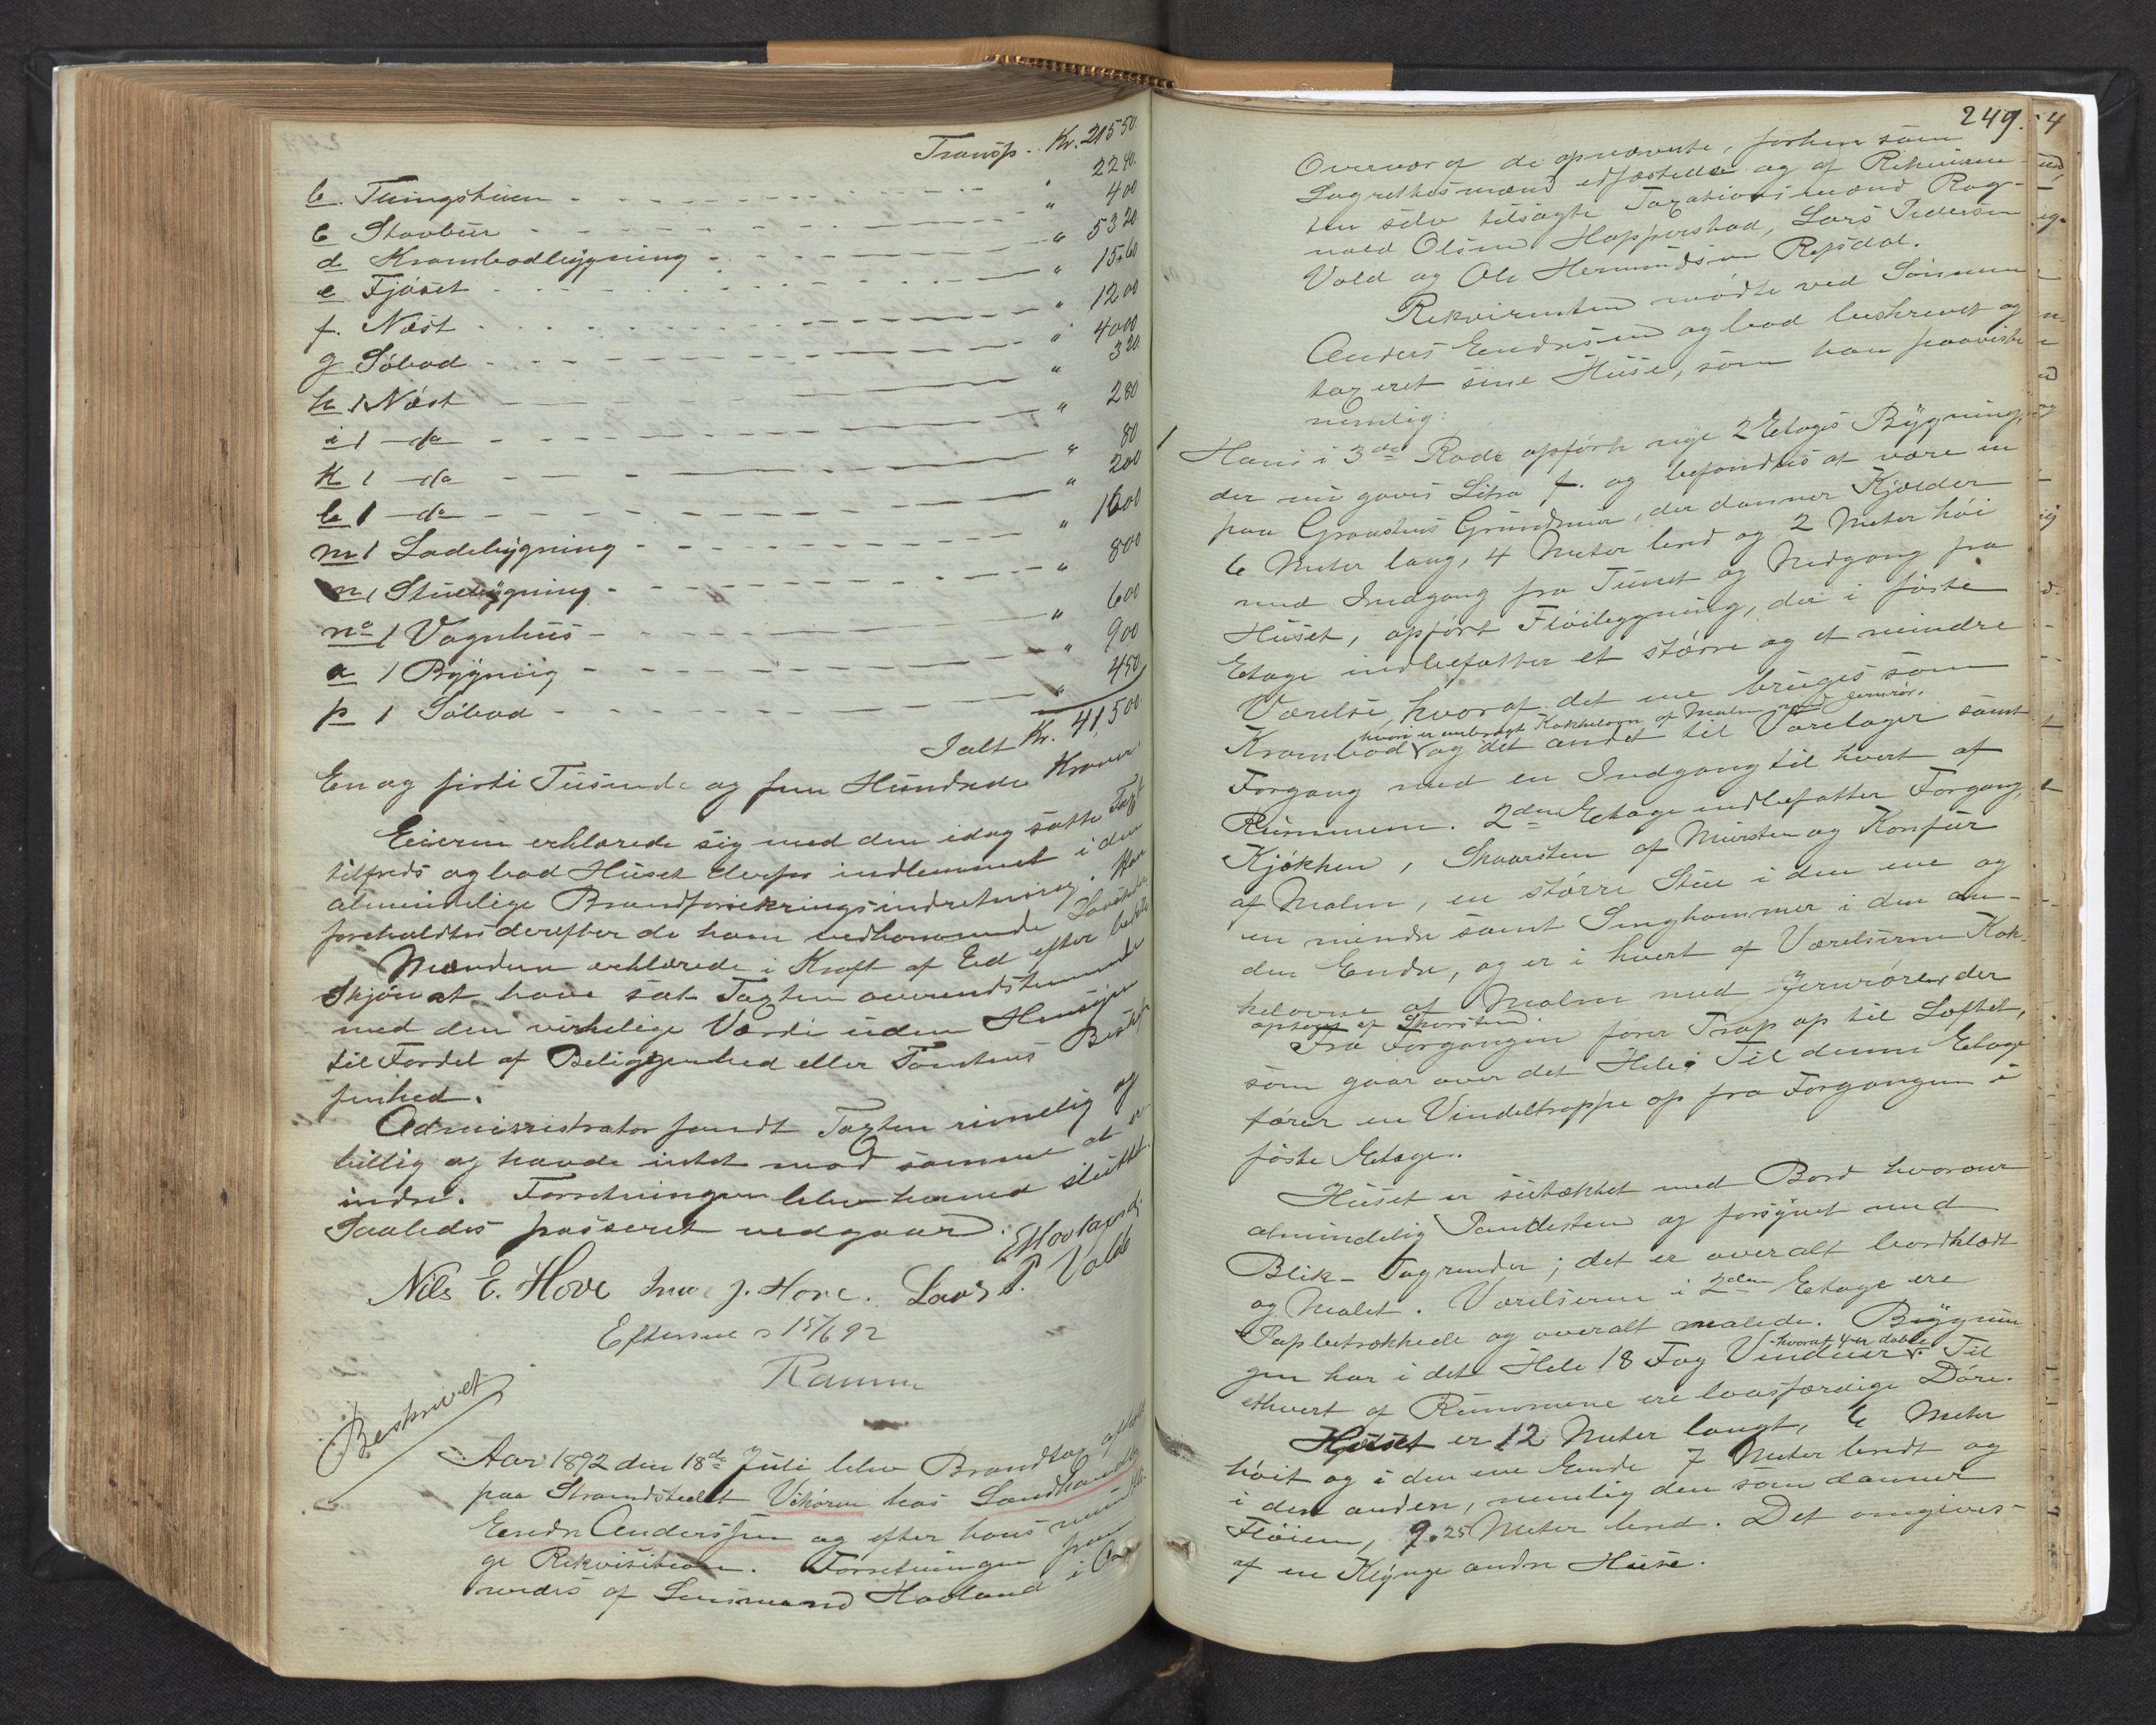 Transp. Kr. 21550.
b. Tuingstuen " 2240.
c Stavbur " 400
d Krambodbygning " 5320
e Fjøset " 1560
f. Nøst " 1200
g Søbod " 4000
h 1 Nøst " 320.
i 1 do " 280
k 1 do " 80
l 1 do " 200
m 1 Ladebygning " 1600
n 1 Stuebygning " 800
no 1 Vognhus " 600
a 1 Bygning " 900
p 1 Søbod " 450.
Ialt Kr. 41,500.
En og firti Tusinde og fem Hundrede Kroner.
Eieren erklærede sig med den idag satte Taxt
tilfreds og bad Huset derfor indlemmet i den
almindelige Brandforsikringsindretning. Han
foreholdtes derefter de ham vedkommende Lovsteder
Mændene erklærede i Kraft af Ed efter bedste
Skjøn at have sat Taxten overensstemmende
med den virkelige Værdi uden Hensyn
til Fordel af Beliggenhed eller Tomtens Beskaf-
fenhed.
Administrator fandt Taxten rimelig og
billig og havde intet mod samme at er-
indre. Forretningen blev hermed sluttet.
Saaledes passeret vedgaaes:
EHovland.
Nils E. Hove J. Hove. Lars P. Vold
Efterseet 15/6 92
Ramm
Beskrivet
Aar 1892 den 18de Juli blev Brandtax afholdt
paa Strandstedet Vikøren hos Landhandler
Endre Anderssen og efter hans mundtli-
ge Rekvisition. Forretningen frem-
medes af Lensmand Hovland i Over-
249.
Overvær af de opnævnte, forhen som
Lagrettesmænd edfæstede og af Rekvirent-
ten selv tilsagte Taxationsmænd Rog-
nald Olsen Hopperstad, Lars Pedersen
Vold og Ole Hermundsen Refsdal.
Rekvirenten mødte ved Sønnen
Anders Endresen og bad beskrevet og
taxeret sine Huse, som han paaviste
nemlig:
1 Hans i 3die Rode opførte nye 2 Etages Bygning,
der nu gives Litra f. og befandtes at være en
paa Graastens Grundmur, der danner Kjælder
6 Meter lang, 4 Meter bred og 2 Meter høi
med Indgang fra Tunet og Nedgang fra
Huset, opført Fløibygning, der i første
Etage indbefatter et større og et mindre
Værelse, hvoraf det ene bruges som
hvori er anbragt Kakkelovn af Malm med Jernrør.
Krambod og det andet til Varelager samt
Forgang med en Indgang til hvert af
Rummene. 2den Etage indbefatter Forgang,
Kjøkken, Skorsten af Mursten og Komfur
af Malm, en større Stue i den ene og
en mindre samt Sengkammer i den an-
den Ende, og er i hvert af Værelserne Kak-
kelovne af Malm med Jernrøre, der
optages af Skorsten.
Fra Forgangen fører Trap op til Loftet,
som gaar over det Hele. Til denne Etage
fører en Vindeltrappe op fra Forgangen i
første Etage.
Huset er sutækket med Bord hvorover
almindelig Pandesten og forsynet med
Blik-Tagrender; det er overalt bordklædt
og Malet. Værelserne i 2den Etage ere
Papbetrækkede og overalt malede. Bygnin
gen har i det Hele 18 Fag Vinduer hvoraf 4 er doble. Til
ethvert af Rummene ere laasfærdige Døre.
Huset er 12 Meter langt, 6 Meter
høit og i den ene Ende 7 Meter bredt og
i den anden, nemlig den som danner
Fløien, 9.25 Meter bred. Det omgives
af en Klynge andre Huse.